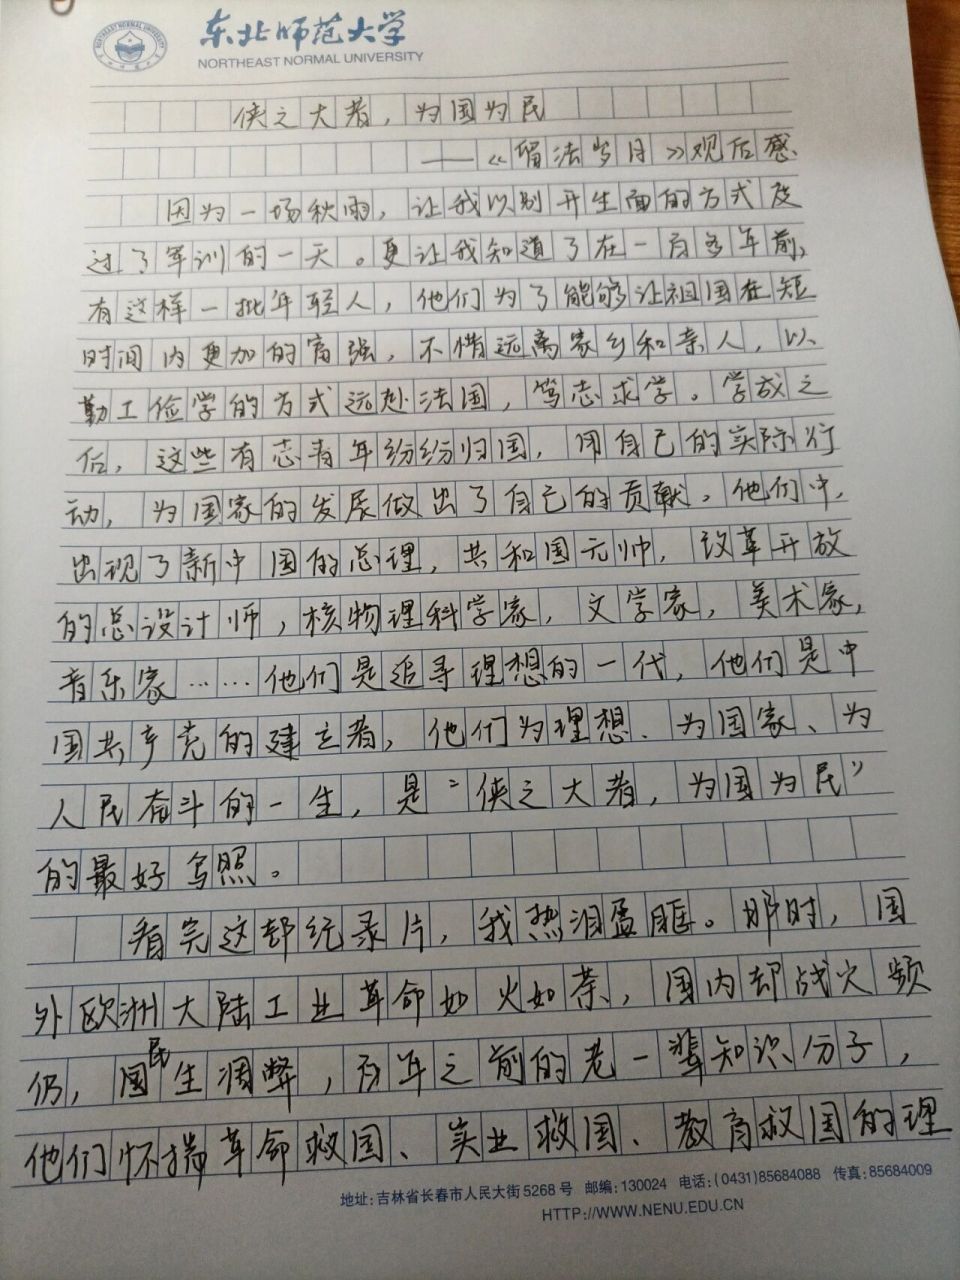 东北师范大学
NORTHEAST NORMAL UNIVERSITY
侠之大者，为国为民
——《留法岁月》观后感
因为一场秋雨，让我以别开生面的方式度
过了军训的一天。更让我知道了在一百多年前，
有这样一批年轻人，他们为了能够让祖国在短
时间内更加的富强，不惜远离家乡和亲人，以
勤工俭学的方式远赴法国，笃志求学。学成之
后，这些有志青年纷纷归国，用自己的实际行
动，为国家的发展做出了自己的贡献。他们中，
出现了新中国的总理，共和国元帅，改革开放
的总设计师，核物理科学家，文学家，美术家，
音乐家……他们是追寻理想的一代，他们是中
国共产党的建立者，他们为理想、为国家、为
人民奋斗的一生，是“侠之大者，为国为民”
的最好写照。
看完这部纪录片，我热泪盈眶。那时，国
外欧洲大陆工业革命如火如荼，国内却战火频
仍，国民生凋弊，百年之前的老一辈知识分子，
他们怀揣革命救国、实业救国、教育救国的理
地址：吉林省长春市人民大街5268号 邮编：130024 电话：(0431)85684088 传真：85684009
HTTP://WWW.NENU.EDU.CN